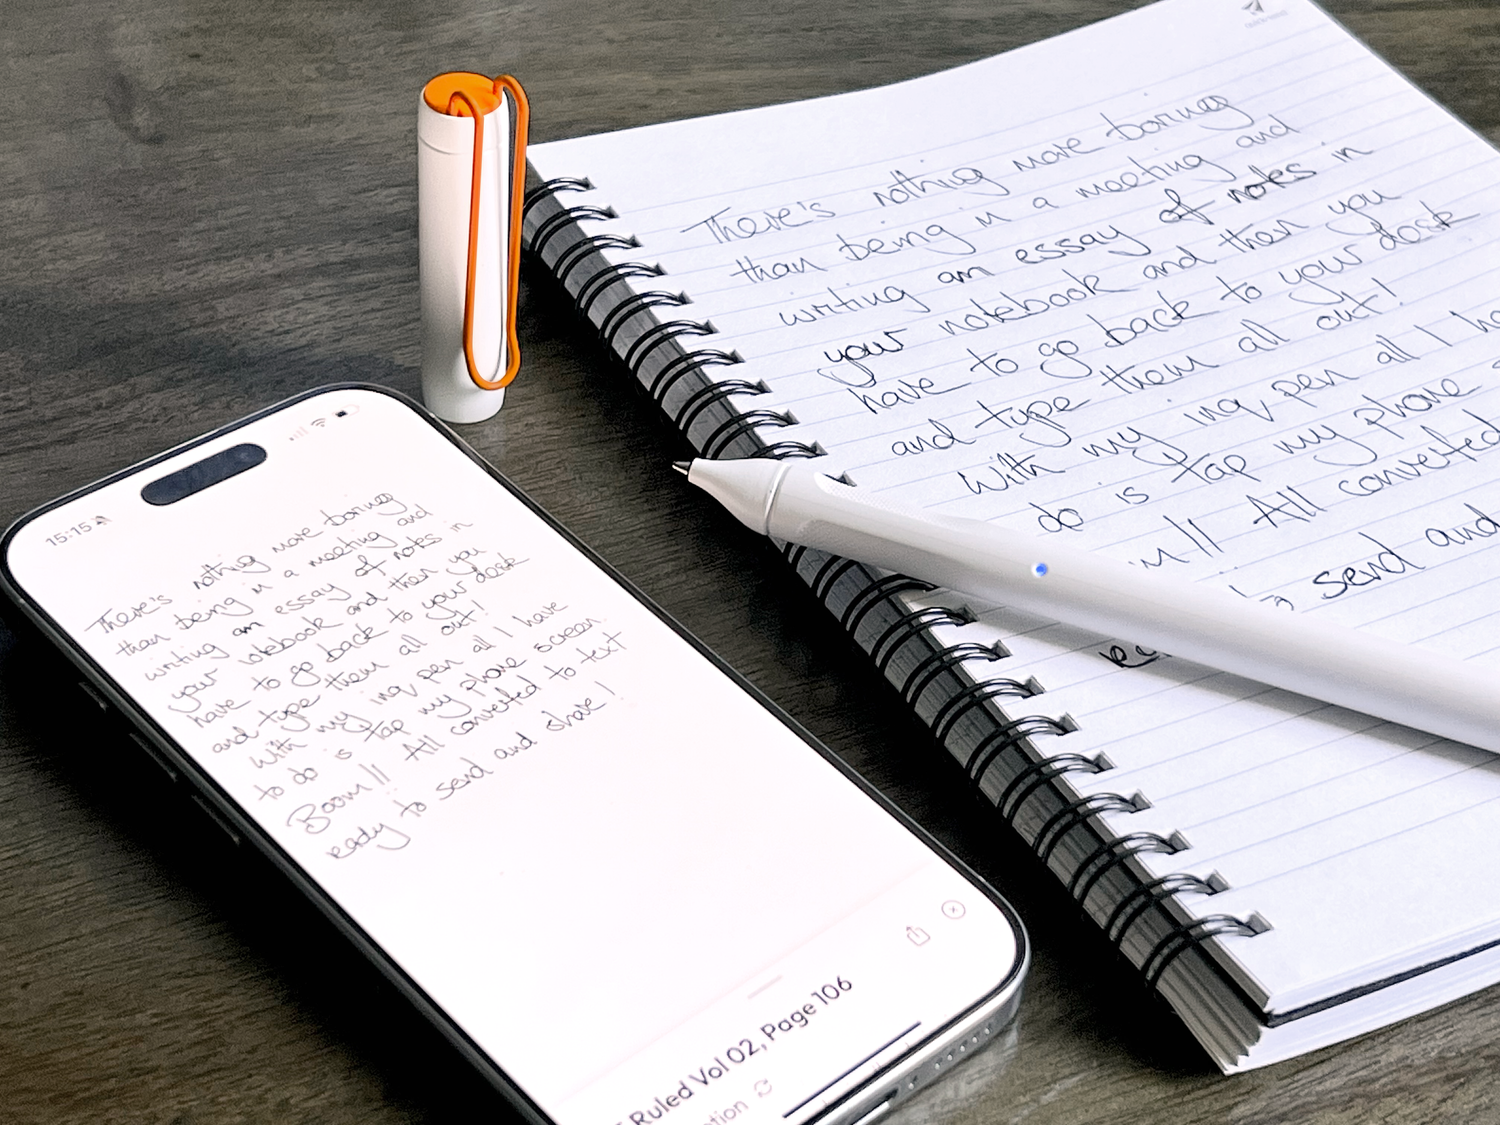 There's nothing more boring
than being in a meeting and
writing an essay of notes in
your notebook and then you
have to go back to your desk
and type them all out!
With my inq pen all I ha
do is tap my phone
m!! All converted
send and
15:15
There's nothing more boring
than being in a meeting and
writing an essay of notes in
your notebook and then you
have to go back to your desk
and type them all out!
With my inq pen all I have
to do is tap my phone screen.
Boom!! All converted to text
ready to send and share!
Ruled Vol 02, Page 106